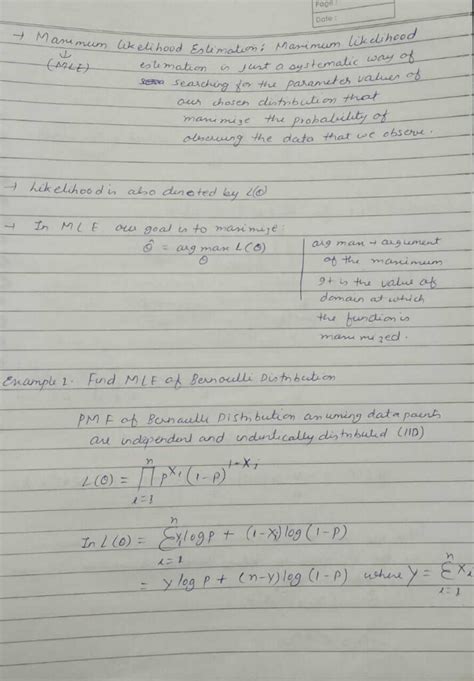 Page:
Date:
→ Maximum likelihood Estimation: Maximum likelihood
↓
(MLE) estimation is just a systematic way of
searching for the parameter values of
our chosen distribution that
maximize the probability of
observing the data that we observe.
→ Likelihood is also denoted by L(θ)
→ In MLE our goal is to maximize:
θ̂ = arg max L(θ)
θ
arg max → argument
of the maximum
It is the value of
domain at which
the function is
maximized.
Example 1. Find MLE of Bernoulli Distribution
PMF of Bernoulli Distribution assuming data points
are independent and indentically distributed (IID)
L(θ) = ∏ᵢ₌₁ⁿ p^{xᵢ} (1-p)^{1-xᵢ}
ln L(θ) = Σᵢ₌₁ⁿ xᵢ log p + (1-xᵢ) log (1-p)
= Y log p + (n-Y) log (1-p) where Y = Σᵢ₌₁ⁿ xᵢ